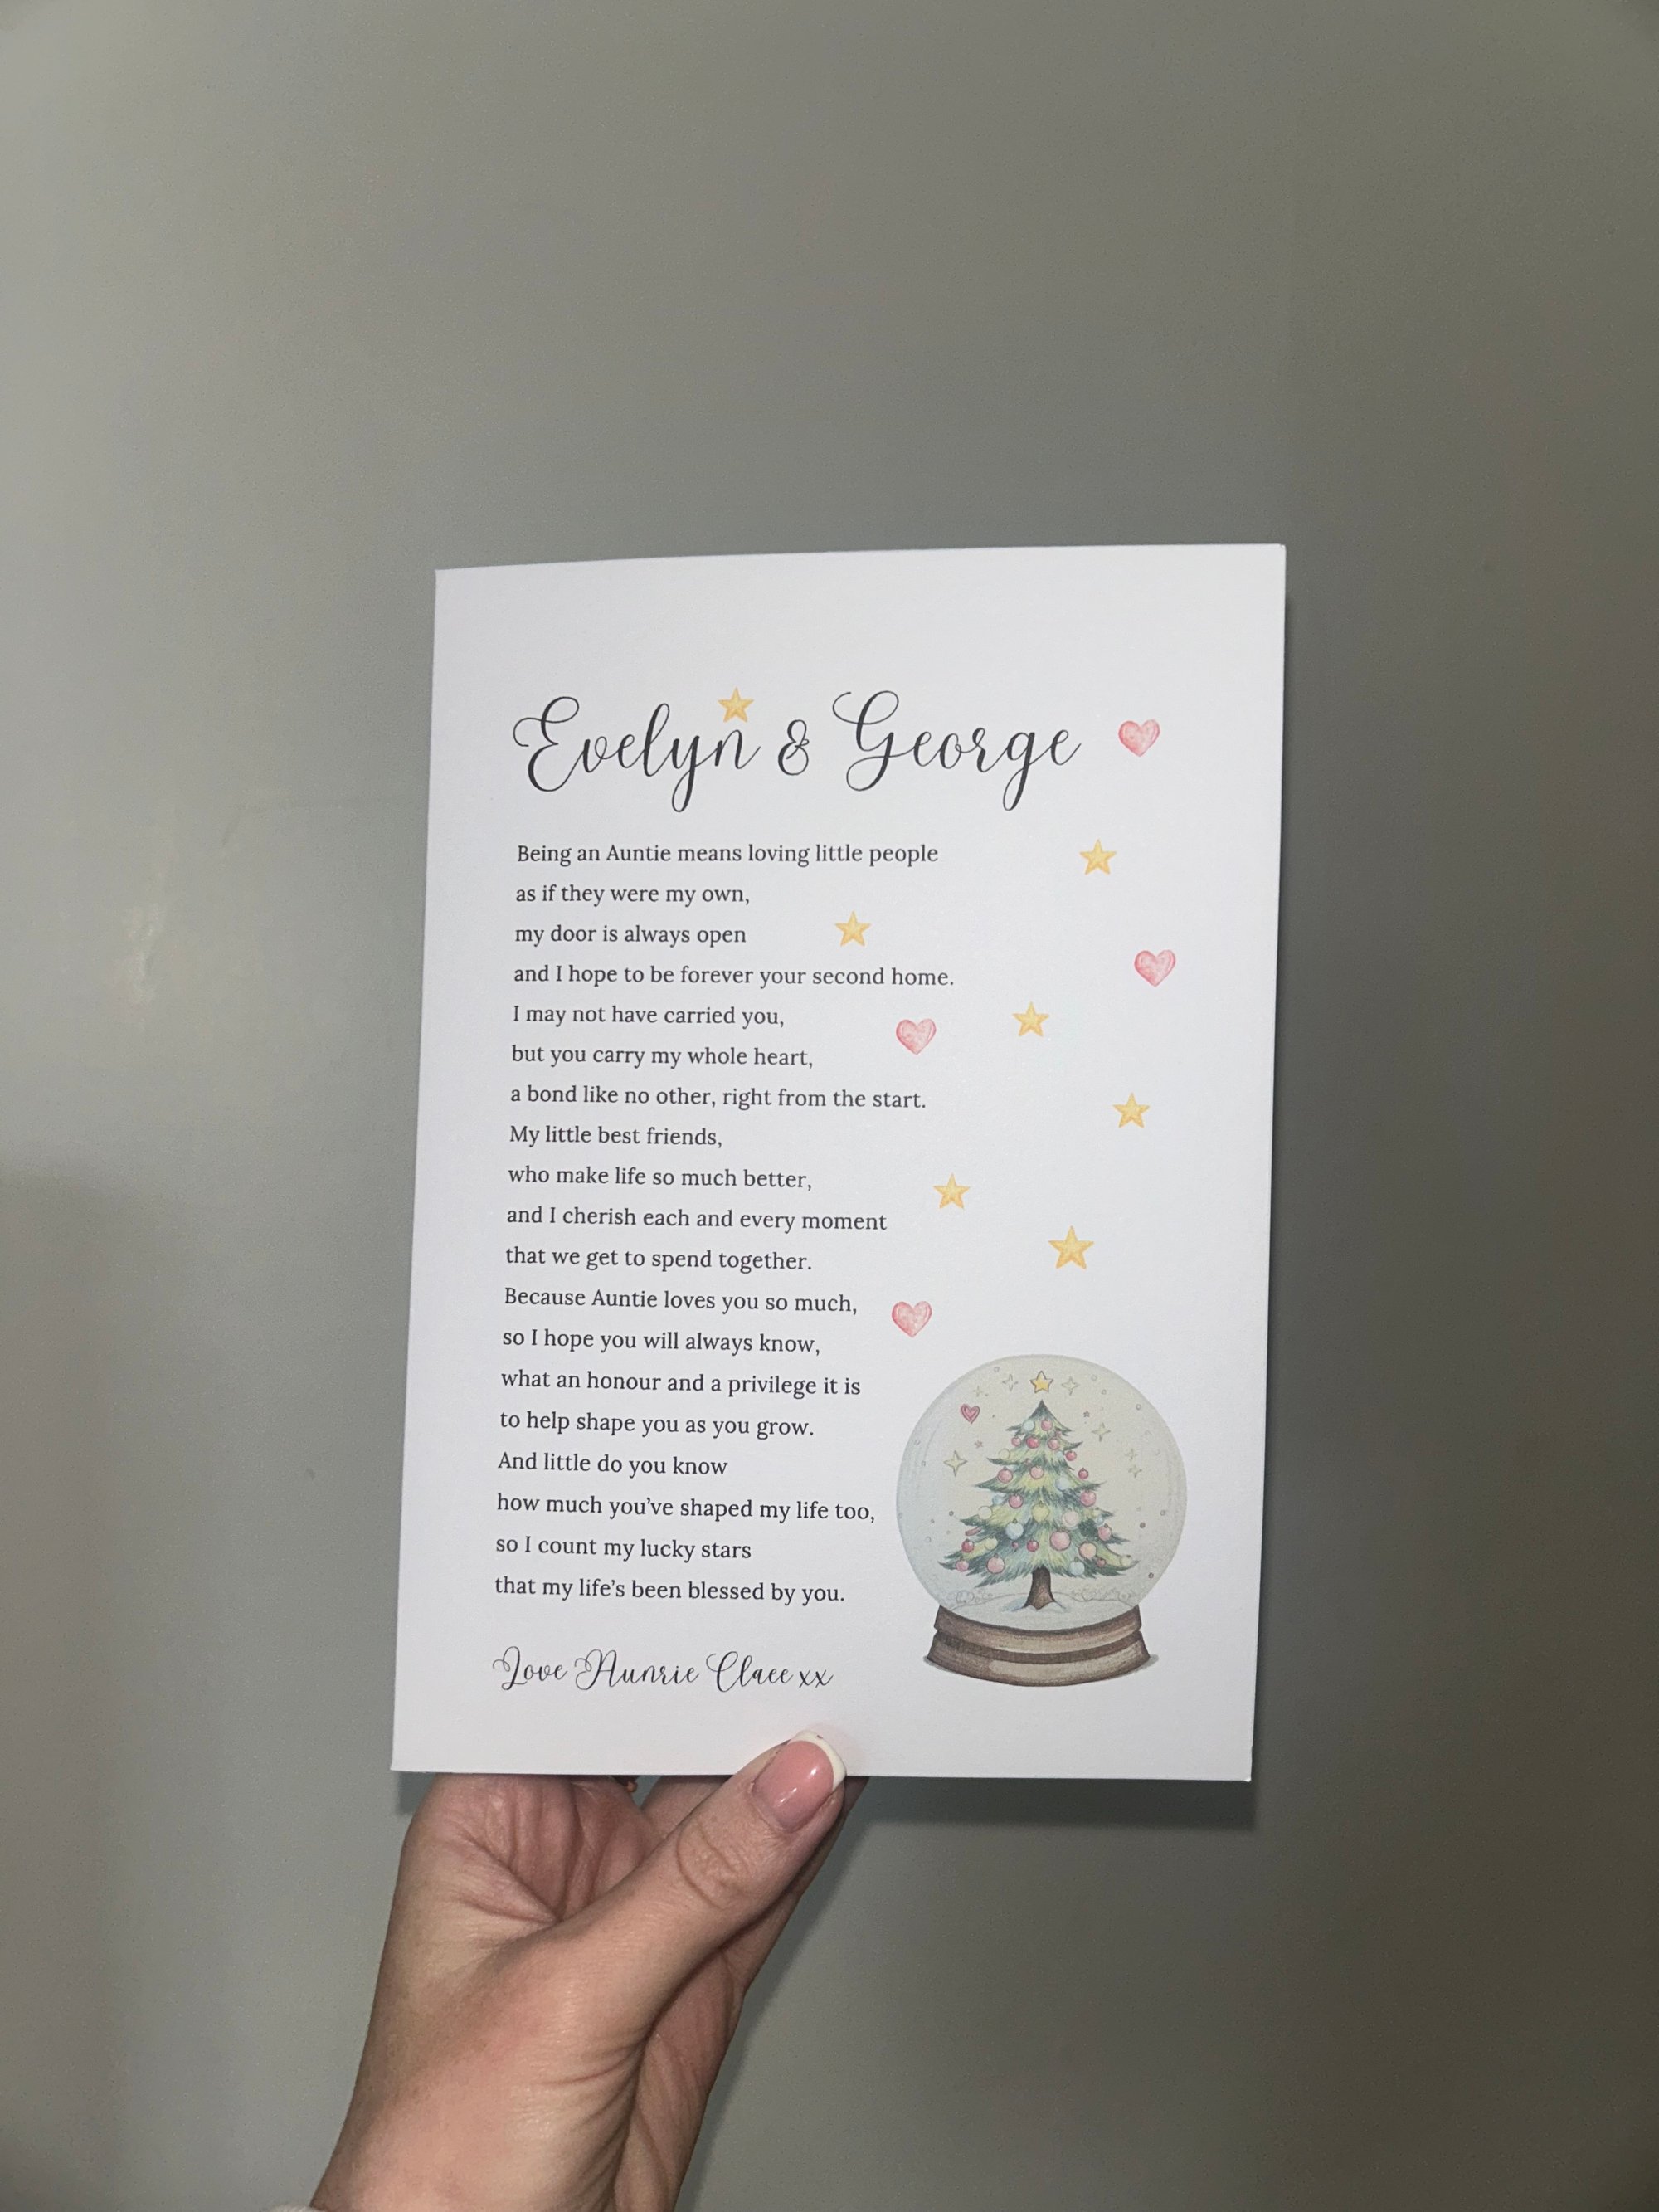 Evelyn & George
Being an Auntie means loving little people
as if they were my own,
my door is always open
and I hope to be forever your second home.
I may not have carried you,
but you carry my whole heart,
a bond like no other, right from the start.
My little best friends,
who make life so much better,
and I cherish each and every moment
that we get to spend together.
Because Auntie loves you so much,
so I hope you will always know,
what an honour and a privilege it is
to help shape you as you grow.
And little do you know
how much you’ve shaped my life too,
so I count my lucky stars
that my life’s been blessed by you.
Love Aunsie Claee xx